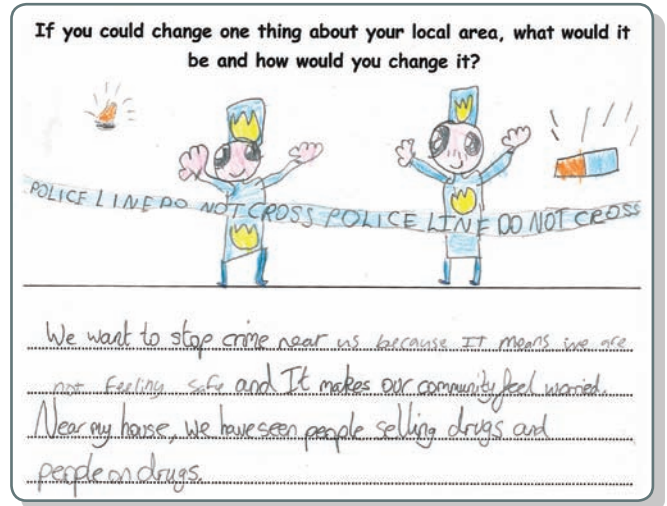 If you could change one thing about your local area, what would it
be and how would you change it?
POLICE LINE DO NOT CROSS POLICE LINE DO NOT CROSS
We want to stop crime near us because IT means we are
not feeling safe and It makes our community feel worried.
Near my house, we have seen people selling drugs and
people on drugs.